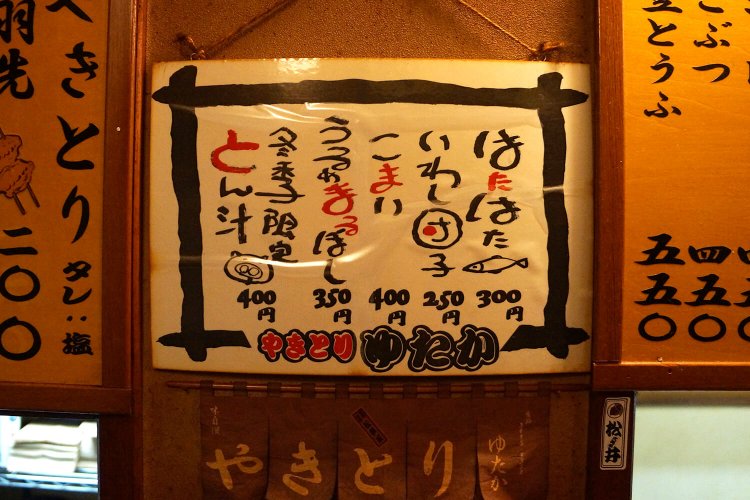 こぶつ
四五〇
豆とうふ
五五〇
はたはた
300円
いわし団子
250円
こまい
400円
うるめまるぼし
350円
冬季限定
とん汁
400円
やきとり ゆたか
やきとり
ゆたか
松乃井
やきとり タレ・塩
二〇〇